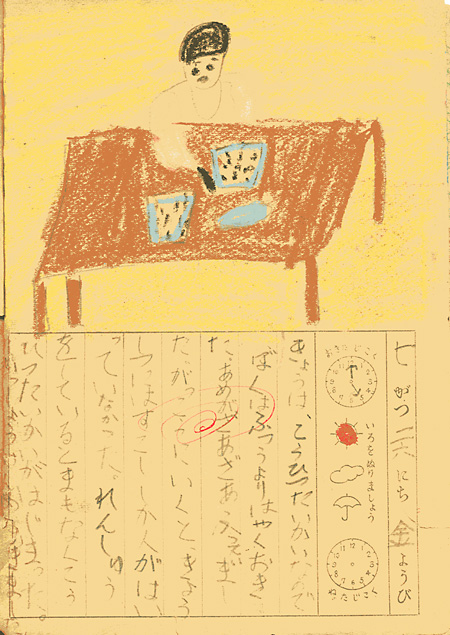 七がつ二六にち金ようび
おきたじこく
いろをぬりましょう
ねたじこく
きょうは、こうひつたいかいなので
ぼくはふつうよりはやくおき
た。あめがざあざあふっていまし
たがっこうにいくときょう
しつはすこししか人がはい
っていなかった。れんしゅう
をしているとまもなくこう
ひつたいかいがはじまった。